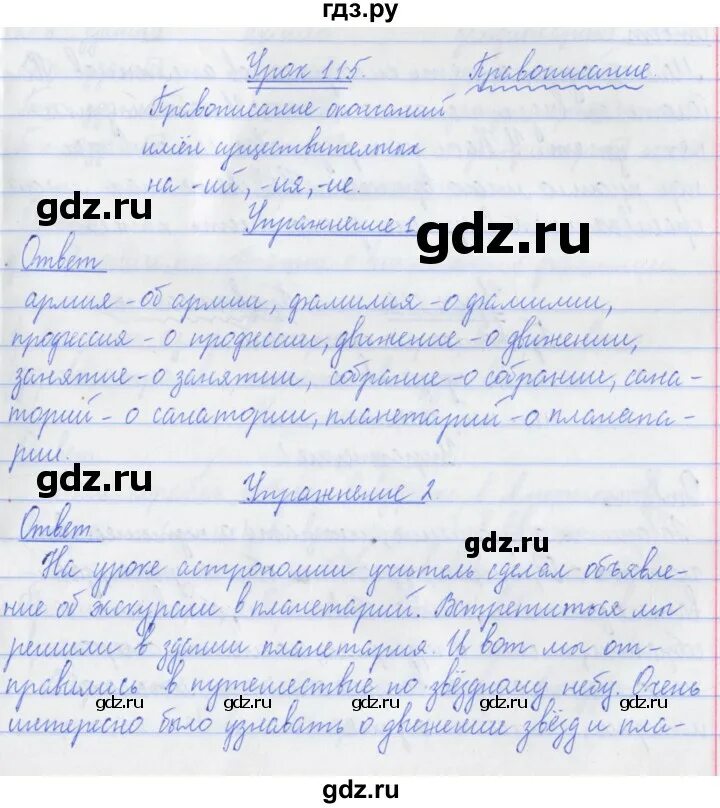 гдз.ру
Урок 115. Правописание.
Правописание окончаний
имён существительных
на -ий, -ия, -ие.
gdz.ru
Упражнение 1
gdz.ru
Ответ
армия - об армии, фамилия - о фамилии,
профессия - о профессии, движение - о движении,
занятие - о занятии, собрание - о собрании, сана-
торий - о санатории, планетарий - о планета-
рии.
gdz.ru
Упражнение 2
Ответ
gdz.ru
На уроке астрономии учитель сделал объявле-
ние об экскурсии в планетарий. Встретиться мы
решили в здании планетария. И вот мы от-
правились в путешествие по звёздному небу. Очень
gdz.ru gdz.ru gdz.ru
интересно было узнавать о движении звёзд и пла-
gdz.ru